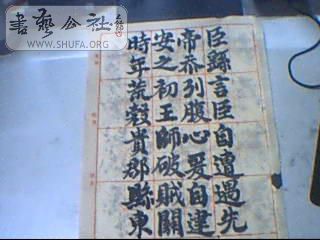 書藝公社
WWW.SHUFA.ORG
臣繇言臣自遭遇先
帝忝列腹心爰自建
安之初王師破賊關
時年荒穀貴郡縣東